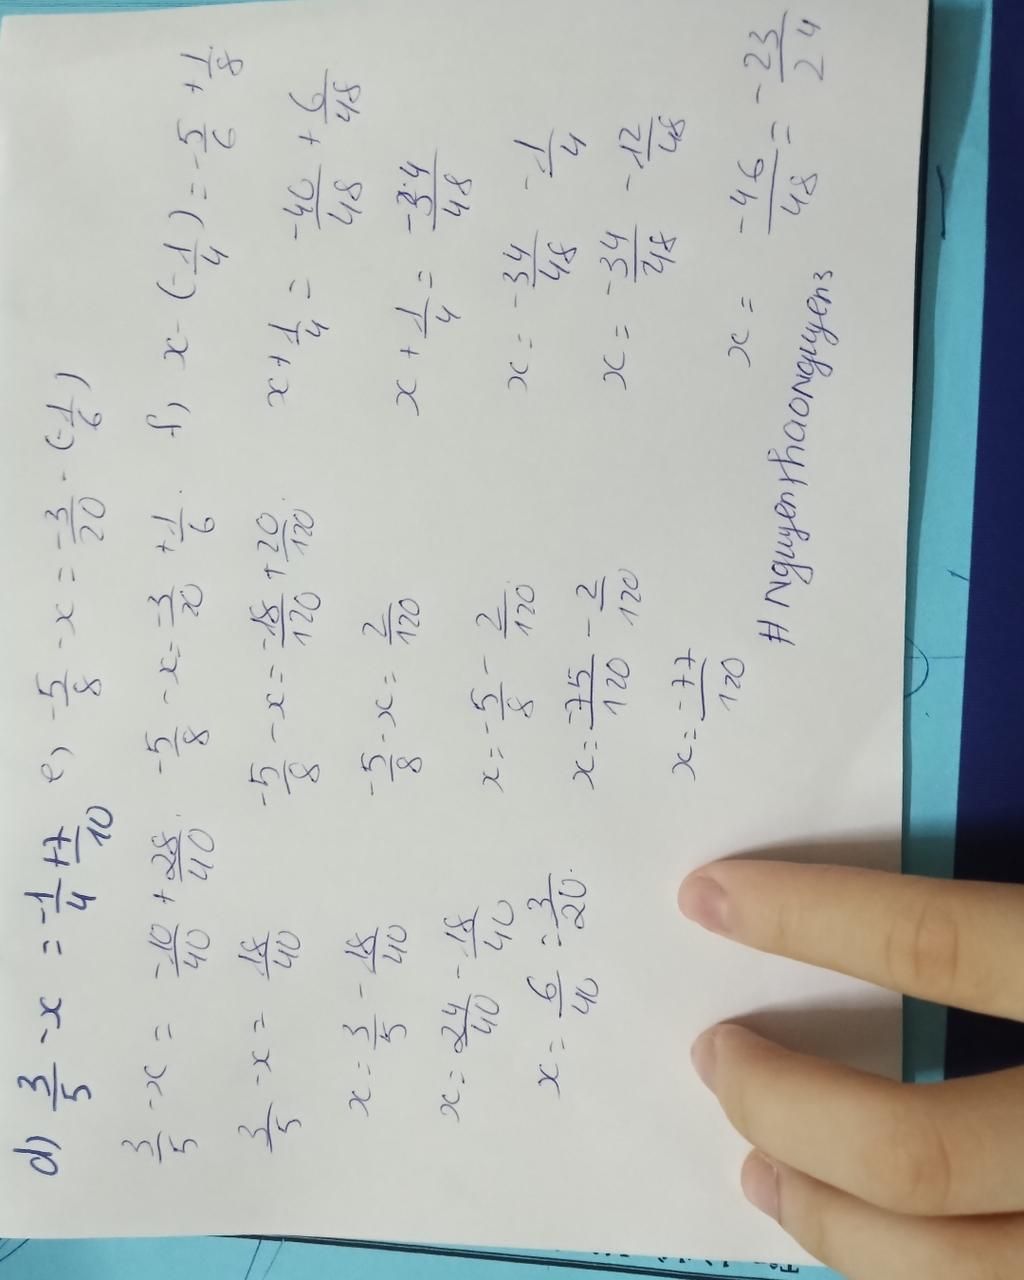 d) 3/5 - x = -1/4 + 7/10
3/5 - x = -10/40 + 28/40
3/5 - x = 18/40
x = 3/5 - 18/40
x = 24/40 - 18/40
x = 6/40 = 3/20
e) -5/8 - x = -3/20 - (-1/6)
-5/8 - x = -3/20 + 1/6
-5/8 - x = -18/120 + 20/120
-5/8 - x = 2/120
x = -5/8 - 2/120
x = -75/120 - 2/120
x = -77/120
f) x - (-1/4) = -5/6 + 1/8
x + 1/4 = -40/48 + 6/48
x + 1/4 = -34/48
x = -34/48 - 1/4
x = -34/48 - 12/48
x = -46/48 = -23/24
# Nguyenthaonguyen3